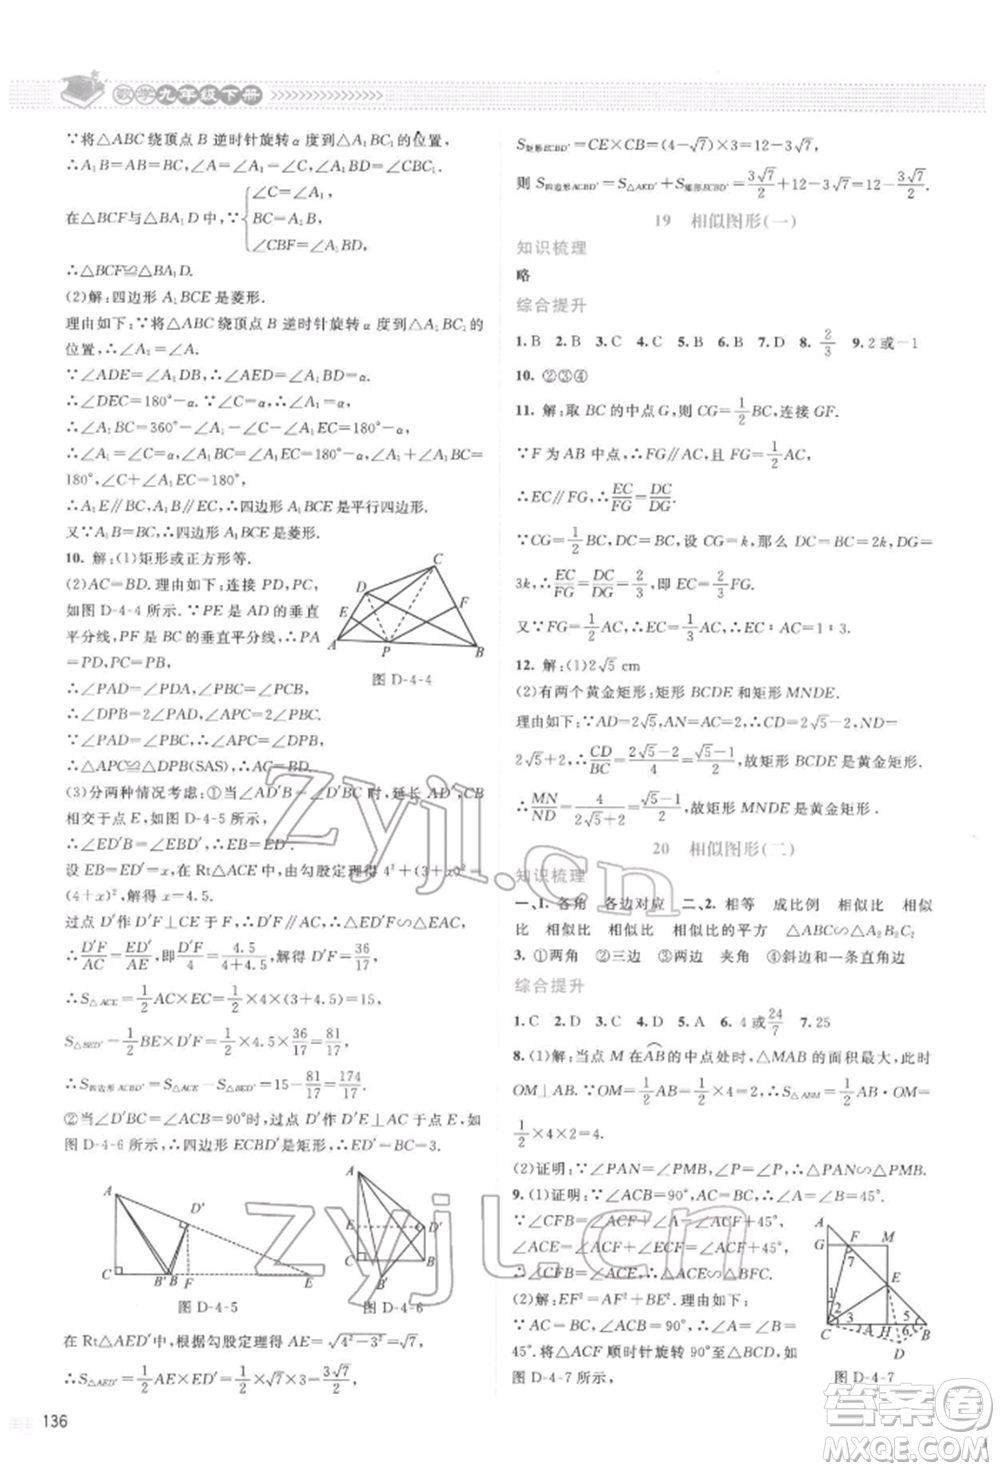 数学九年级下册
∵将△ABC 绕顶点 B 逆时针旋转 α 度到△A₁BC₁的位置,
∴A₁B=AB=BC,∠A=∠A₁=∠C.
在△BCF与△BA₁D 中,
∠C=∠A₁
A₁B=BC
∠CBF=∠A₁BD
∴△BCF≌△BA₁D.
(2)解:四边形 A₁BCE 是菱形.
理由如下:∵将△ABC 绕顶点 B 逆时针旋转 α 度到△A₁BC₁的位置,∴∠A₁=∠A.
∵∠ADE=∠A₁DB,∴∠AED=∠A₁BD=α.
∴∠DEC=180°-α.∵∠C=α,∴∠A₁=α.
∴∠A₁BC=360°-∠A₁-∠C-∠A₁EC=180°-α.
∴∠A₁=∠C=α,∠A₁+∠A₁BC=180°,∠C+∠A₁BC=180°.
∴A₁E∥BC,A₁B∥CE.∴四边形 A₁BCE是平行四边形.
又∵A₁B=BC,∴四边形 A₁BCE是菱形.
10. 解:(1)矩形或正方形等.
(2)AC=BD. 理由如下:连接 PD,PC,如图 D-4-4 所示.∵PE 是 AD 的垂直平分线,PF 是 BC 的垂直平分线,∴PA=PD,PC=PB.
∴∠PAD=∠PDA,∠PBC=∠PCB.
∴∠DPB=2∠PAD,∠APC=2∠PBC.
∴∠APC=∠DPB.
∴△APC≌△DPB(SAS),∴AC=BD.
图 D-4-4
(3)分两种情况考虑:①当∠AD′B=∠D′BC 时,延长 AD′,CB相交于点 E,如图 D-4-5 所示,
∴∠ED′B=∠EBD′,∴EB=ED′.
设 EB=ED′=x,在 Rt△ACE 中,由勾股定理得 4²+(3+x)²=(4+x)²,解得 x=4.5.
过点 D′作 D′F⊥CE 于点 F,∴D′F∥AC,∴△ED′F∽△EAC,
∴D′F/AC=ED′/AE,即D′F/4=4.5/(4+4.5),解得:D′F=36/17.
∴S△ACE=1/2AC×EC=1/2×4×(3+4.5)=15.
S△BED′=1/2BE×D′F=1/2×4.5×36/17=81/17.
∴S四边形ACBD′=S△ACE-S△BED′=15-81/17=174/17.
②当∠D′BC=∠ACB=90°时,过点 D′作 D′E⊥AC于点 E,如图 D-4-6 所示,∴四边形 ECBD′是矩形,∴ED′=BC=3.
图 D-4-5
图 D-4-6
在 Rt△AED′中,根据勾股定理得 AE=√(4²-3²)=√7,
∴S△AED′=1/2AE×ED′=1/2×√7×3=3√7/2,
136
S矩形ECBD′=CE×CB=(4-√7)×3=12-3√7,
则 S四边形ACBD′=S△AED′+S矩形ECBD′=3√7/2+12-3√7=12-3√7/2.
19 相似图形(一)
知识梳理
略
综合提升
1.B 2.B 3.C 4.C 5.B 6.B 7.D 8.2/3 9.2或-1
10. ②③④
11. 解:取 BC 的中点 G,则 CG=1/2BC,连接 GF.
∵F 为 AB 中点,∴FG∥AC,且FG=1/2AC.
∴EC∥FG,∴EC/FG=DC/DG.
∵CG=1/2BC,CD=BC,设CG=k,那么 DC=2k,DG=3k,∴EC/FG=DC/DG=2/3,即EC=2/3FG.
又∵FG=1/2AC,∴EC=1/3AC,∴EC∶AC=1∶3.
12. 解:(1)2√5 cm
(2)有两个黄金矩形:矩形 BCDE 和矩形 MNDE.
理由如下:∵AD=2√5,AN=AC=2,∴CD=2√5-2,ND=2√5+2,∴CD/BC=(2√5-2)/4=(√5-1)/2,故矩形 BCDE 是黄金矩形.
∴MN/ND=4/(2√5+2)=(√5-1)/2,故矩形 MNDE是黄金矩形.
20 相似图形(二)
知识梳理
一、1. 各角 各边对应 二、2. 相等 成比例 相似比 相似比 相似比 相似比 相似比的平方 △ABC∽△A₂B₂C₂
3. ①两角 ②三边 ③两边 夹角 ④斜边和一条直角边
综合提升
1.C 2.D 3.C 4.D 5.A 6.4或24/7 7.25
8. (1)解:当点 M 在AB的中点处时,△MAB 的面积最大,此时OM⊥AB. ∵OM=1/2AB=1/2×4=2,∴S△ABM=1/2AB·OM=1/2×4×2=4.
(2)证明:∵∠PAN=∠PMB,∠P=∠P,∴△PAN∽△PMB.
9. (1)证明:∵∠ACB=90°,AC=BC,∴∠A=∠B=45°.
∵∠CFB=∠ACF+∠A=∠ACF+45°,
∠ACE=∠ACF+∠ECF=∠ACF+45°,
∴∠CFB=∠ACE,∴△ACE∽△BFC.
(2)解:EF²=AF²+BE². 理由如下:
∵AC=BC,∠ACB=90°,∴∠A=∠5=45°.将△ACF 顺时针旋转 90°至△BCD,如图 D-4-7 所示,
图 D-4-7
Zyjl.cn
zyjl.cn
答案圈
MXQE.COM